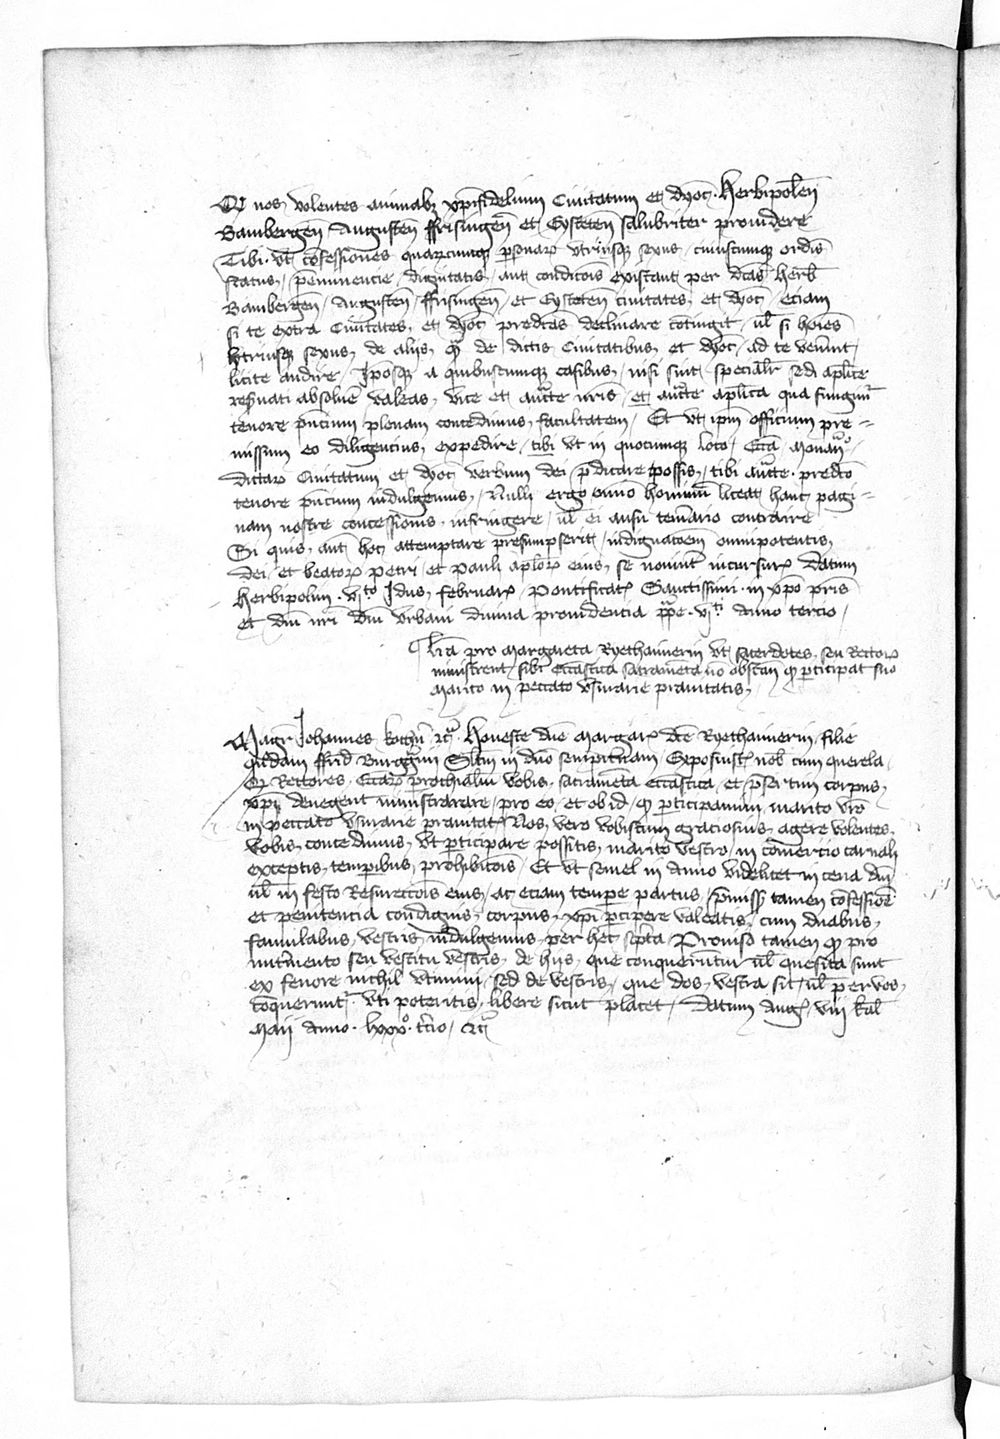 Q nos volentes animabꝫ xpifidelium Ciuitatum et dyoc̄ . Herbipolen̄
Bambergen̄ Augusten̄ ffrisingen̄ et Eysteten̄ salubriter prouidere
Tibi . vt confessiones quarumcumqꝫ personarꝫ vtriusqꝫ sexus / cuiuscumqꝫ ordīs
status / p̄eminencie / dignitatis / aut condicōis existant per dc̄as herb̄
Bambergen̄ / Augusten̄ / ffrisingen̄ / et Eysteten̄ ciuitates et dyoc̄ / eciam
si te extra Ciuitates et dyoc̄ predc̄as declinare cōtingit / ul̄ si hoīes
vtriusqꝫ sexus de alijs qȝ de dictis Ciuitatibus et dyoc̄ / ad te venīnt /
licite audire / Ip̄osqꝫ a quibuscumqꝫ casibus / nisi sint / specialr̄ sedi aplīce
reseruati absoluē valeas / vice et auc̄te nr̄is / et auc̄te aplīca qua fungim̄
tenore pn̄cium plenam concedimus facultatem / Et vt ip̄m officium pre=
missum eo diligencius expedire / tibi vt in quocumqꝫ loco /
dictarꝫ Ciuitatum et dyoc̄ verbum dei p̄dicare possis / tibi auc̄te . predc̄a
tenore pn̄cium indulgemus / Nulli ergo omīo hominum liceat hanc pagi=
nam nostre concessionis infringere / ul̄ ei ausu tem̄ario contraire
Si quis aut hoc attemptare presumpserit / indignacōem omnipotentis
dei / et beatorꝫ Petri et Pauli aplorꝫ eius se nouerit incursurꝫ Datum
Herbipolim . vjto Idus februarꝫ Pontificatꝫ Sanctissimi in xpō pr̄is
et dn̄i nr̄i dn̄i vrbani diuina prouidencia pp̄e . vjti anno tercio /
Lr̄a pro Margareta Ryethaimerin vt sacerdotes seu Rectorꝫ
ministrent sibi ecc̄astica sacramēta nō obstan̄ qȝ participat suo
marito in peccato vsurarie prauitatis
Magr̄ Johannes rc̄ . Honeste dn̄e Margarꝫ dc̄e Ryethaimerin / filie
quōdam ffrid̄ Burggn̄ Sal̄tm in dn̄o sempit̄nam / Exposuistꝫ nob̄ cum querela
Qȝ Rectores Ecc̄arꝫ p̄rochialiū vobis sacramēta ecc̄astica et p̄sertim corpus
xpi denegent ministrarare / pro eo et ob id / qȝ participamini marito vr̄o
in peccato vsurarie prauitatꝫ Nos vero vobiscum graciosius agere volentes
vobis concedimus vt participare possitis marito vestro in com̄ercio carnali
exceptis temp̄ibus prohibitōis / Et vt semel in anno videlicet in cena dn̄i
ul̄ in festo Resurrectōis eius / ac eciam tempe partus / p̄missꝫ tamen cōfessiōe
et penitencia condignis corpus xpi p̄cipere valeatis cum duabus
famulabus vestris indulgemus / per hec scpta / Prouiso tamen qȝ pro
nut̄mento seu vestitu vestris / de hijs que conquerunt̄ ul̄ quesita sunt
ex fenore nichil vtimini / sed de vestris / que dos vestra sit / ul̄ per vos
conquerunt̄ / vti poteritis libere sicut placet / Datum Augꝫ viij kal̄
Maij anno . lxxxo. tc̄io / rc̄